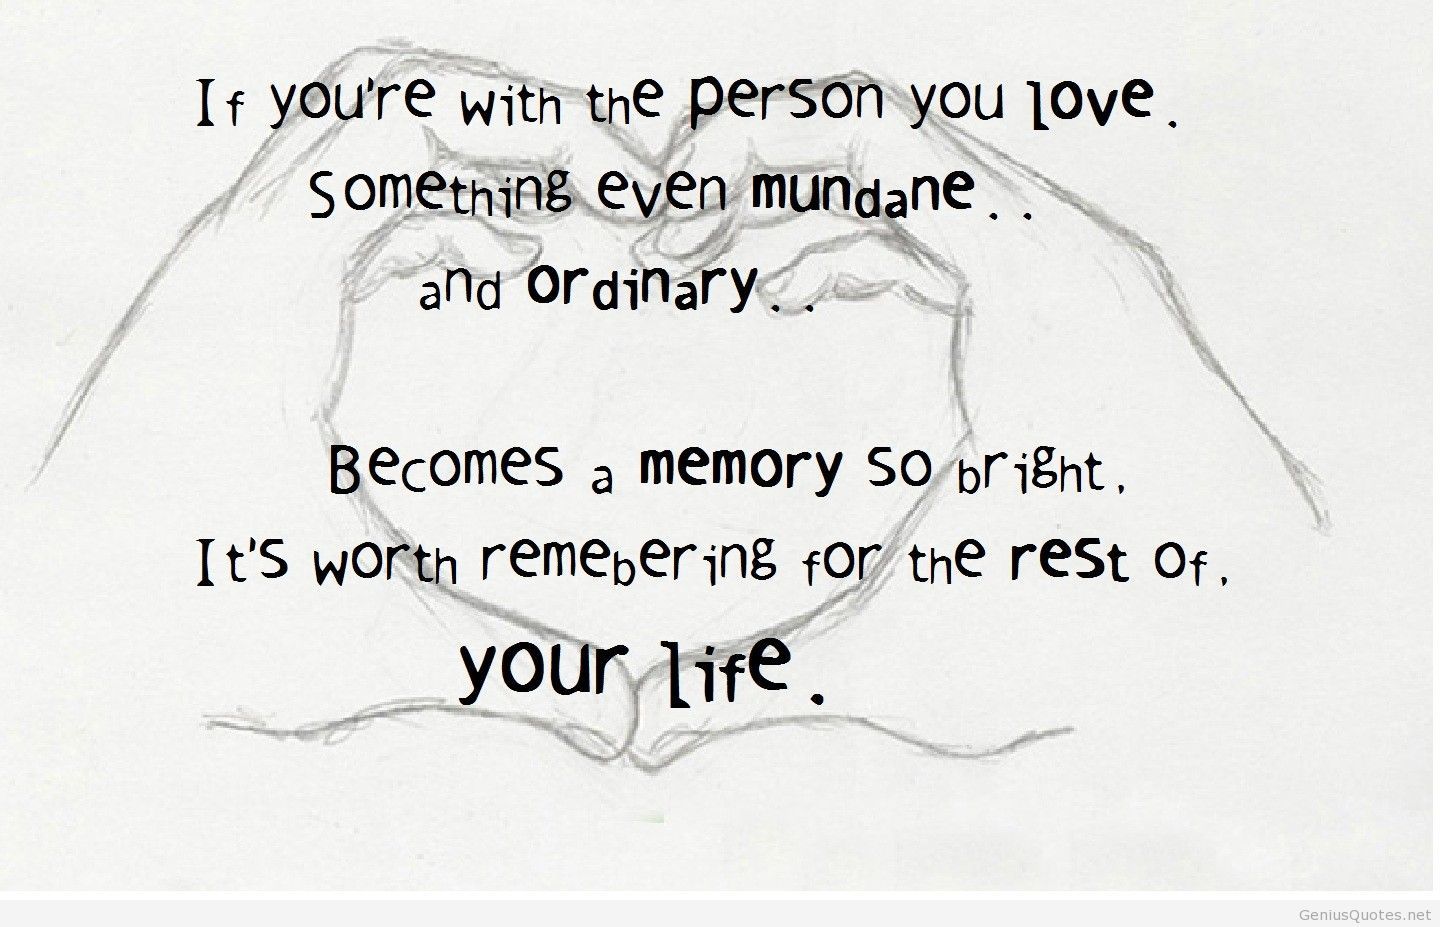 If you're with the person you love.
Something even mundane..
and ordinary..
Becomes a memory so bright,
It's worth remebering for the rest of,
your life.
GeniusQuotes.net